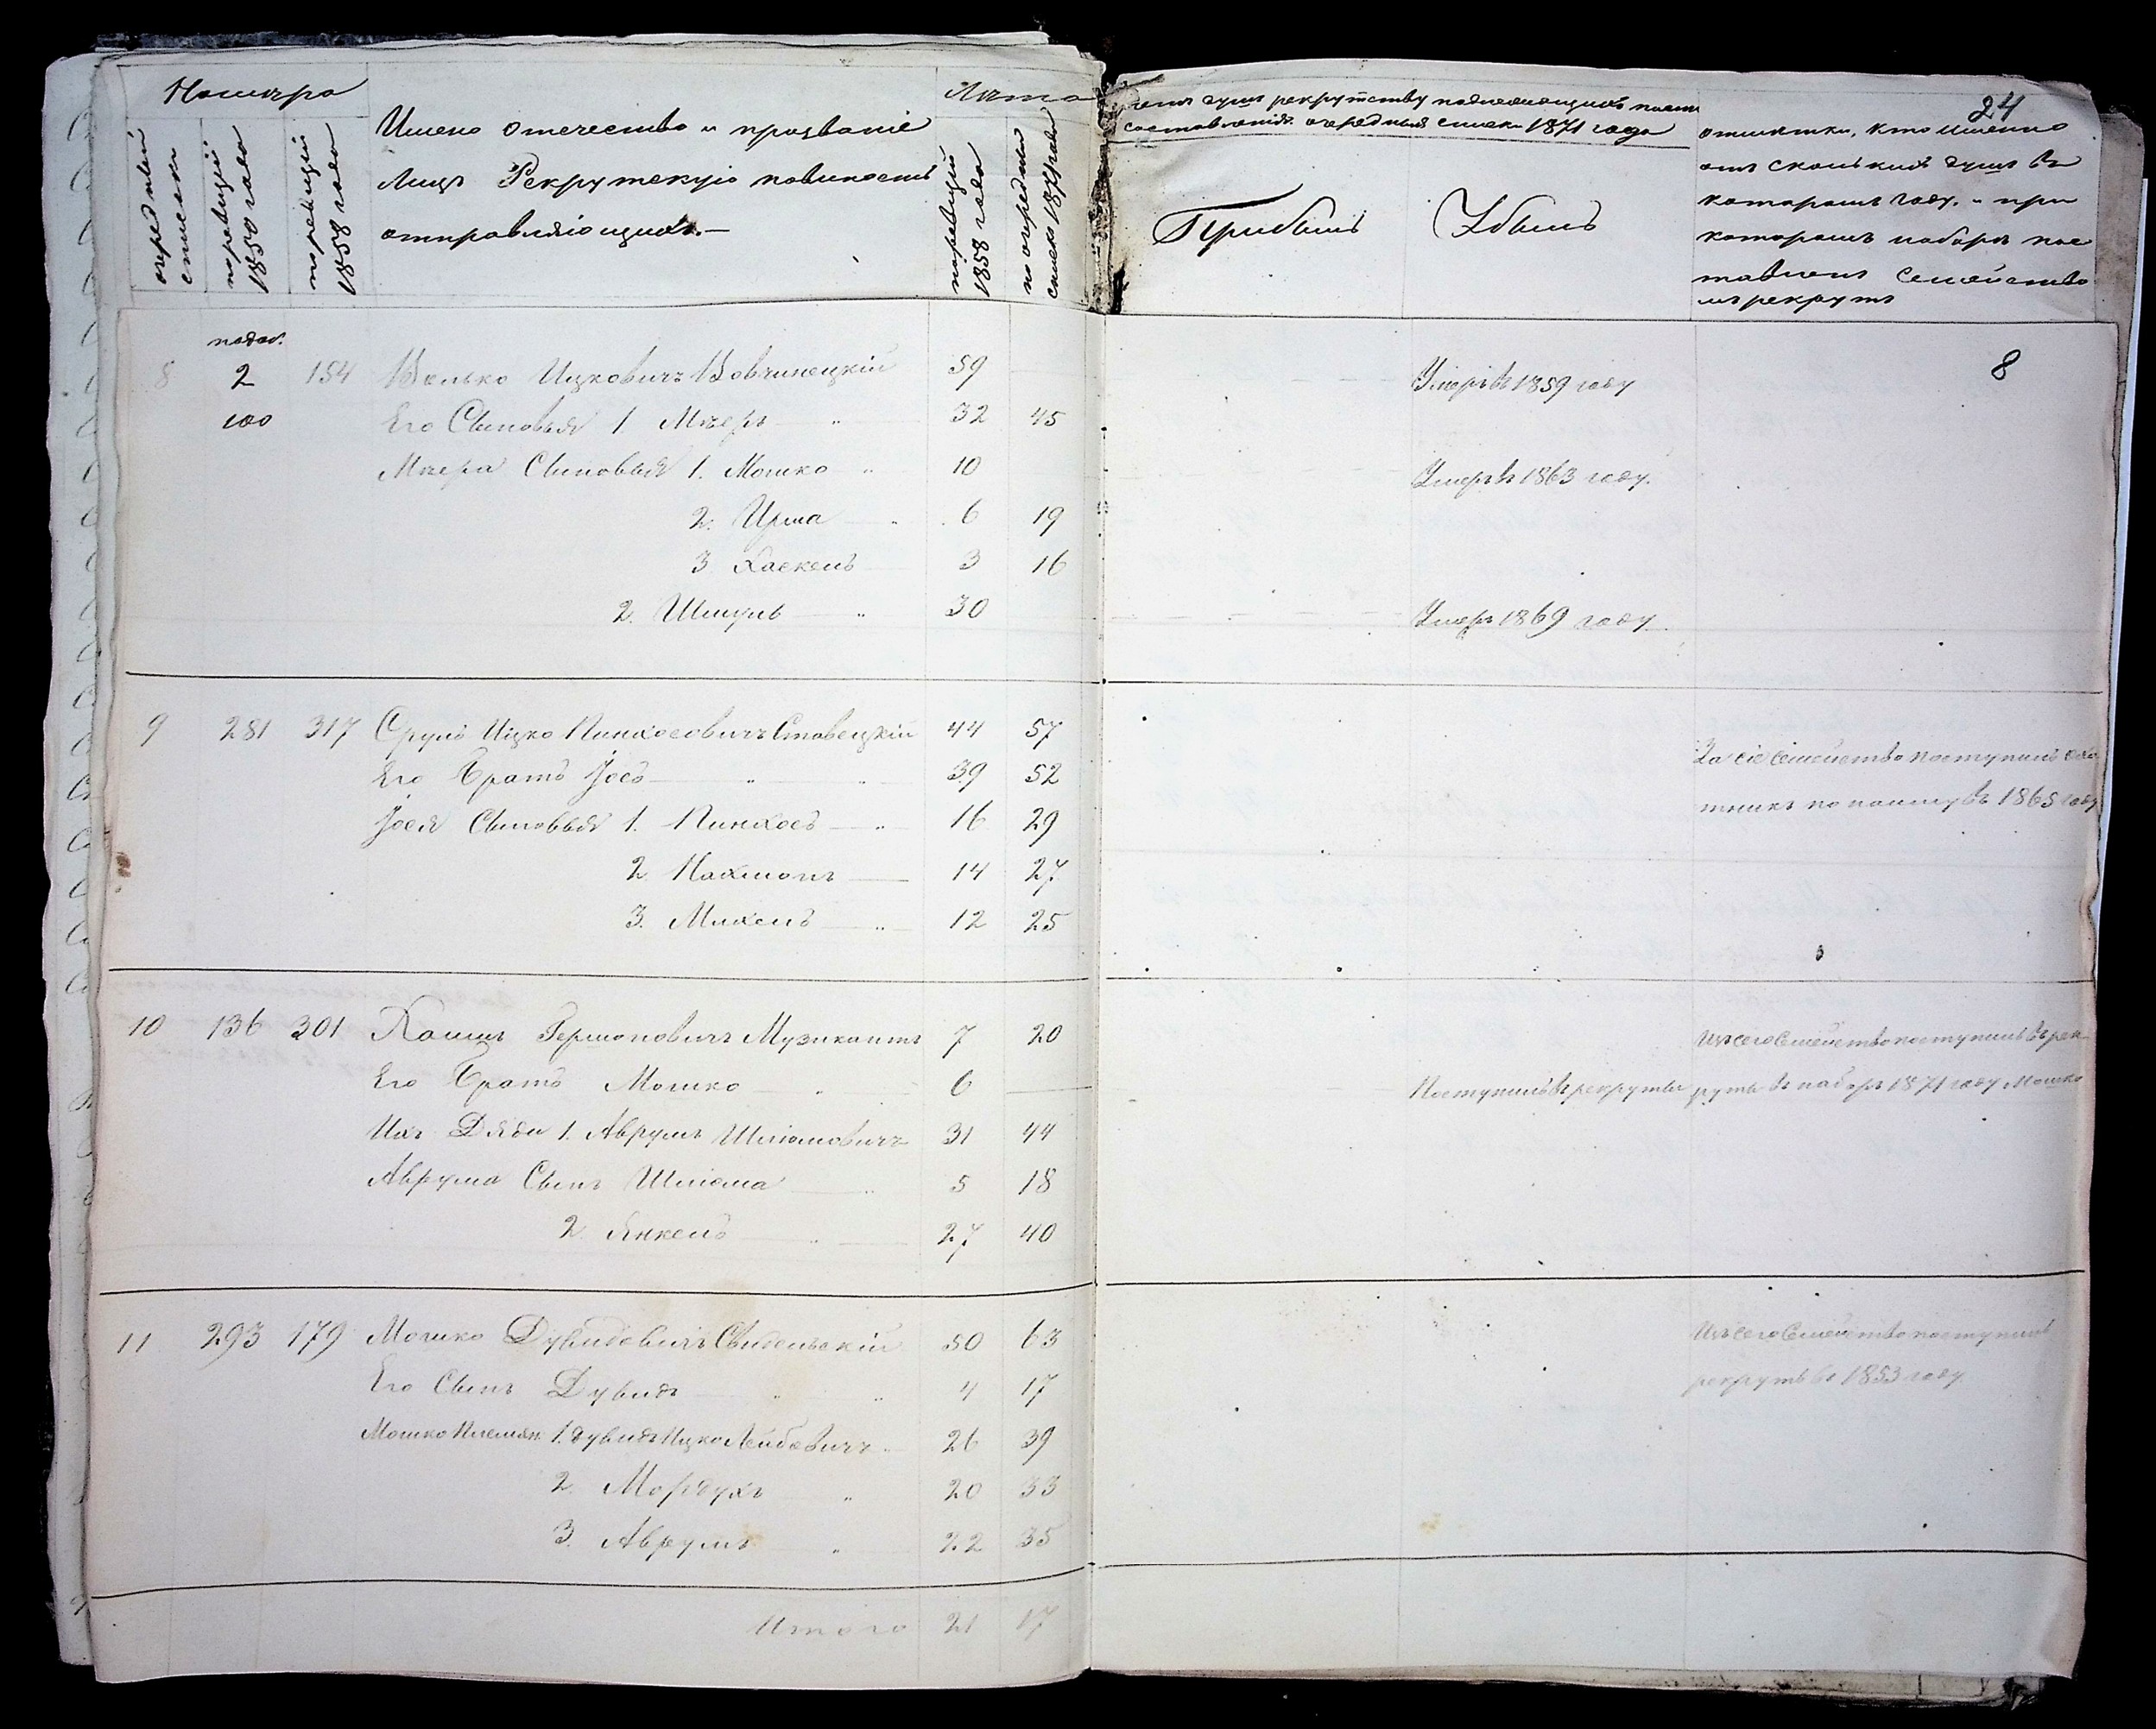 Номѣра
очередный списокъ
по ревизіи 1850 года
по ревизіи 1858 года
Имено отечество и прозваніе
Лицъ Рекрутскую повиность
отправляющихъ.—
Лѣта
по ревизіи 1858 года
по очередном списке 1871 года
душъ рекрутству подлежащихъ
составленія очередный списки 1871 года
Прибыль
Убыль
24
отмѣтки, кто именно
отъ сколькихъ душъ въ
которомъ году. и при
которомъ наборѣ пос
тавлены Семейство
мъ рекрутъ
8
8 2 154 Велько Ицковичъ Вовчинецкій 59 Умеръ въ 1859 году
100 Его Сыновья 1 Мееръ " 32 45
Меера Сыновья 1. Мошко " 10 Умеръ въ 1863 году.
2. Ирма " 6 19
3 Хаскель 3 16
2. Шмуль " 30 Умеръ 1869 году.
9 281 317 Сруль Ицко Пинхосовичъ Ставецкій 44 57
Его Братъ Іось " " 39 52 За сіе Семейство поступилъ охо
Іося Сыновья 1. Пинхосъ " 16 29 тникъ по найму въ 1865 году
2. Нахманъ 14 27
3. Михель " 12 25
10 136 301 Хаимъ Герш­оновичъ Музикантъ 7 20 Изъ сего Семейства поступилъ въ рек
Его Братъ Мошко " 6 Поступилъ въ рекруты руты въ наборъ 1871 году Мошко
Ихъ Дяди 1. Аврумъ Шліомовичъ 31 44
Аврума Сынъ Шліома " 5 18
2 Янкель " 27 40
11 293 179 Мошко Дувидовичъ Свидельскій 50 63 Изъ сего Семейства поступилъ
Его Сынъ Дувидъ " " 4 17 рекрутъ въ 1853 году.
Мошко Племян. 1. Дувидъ Ицко Лейбовичъ " 26 39
2. Мордухъ " 20 33
3. Аврумъ " 22 35
Итого 21 17